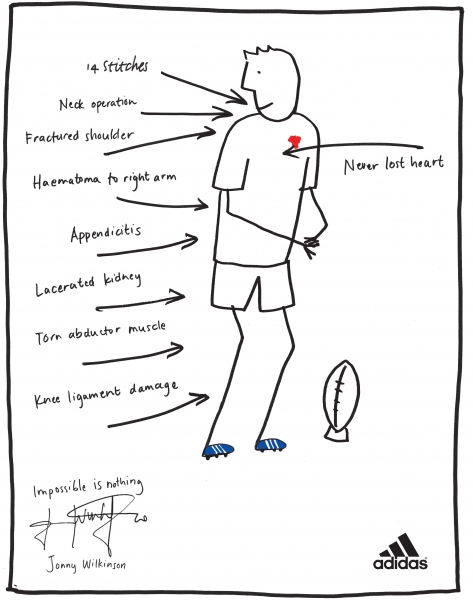 14 stitches
Neck operation
Fractured shoulder
Never lost heart
Haematoma to right arm
Appendicitis
Lacerated kidney
Torn abductor muscle
Knee ligament damage
Impossible is nothing
Jonny Wilkinson
adidas